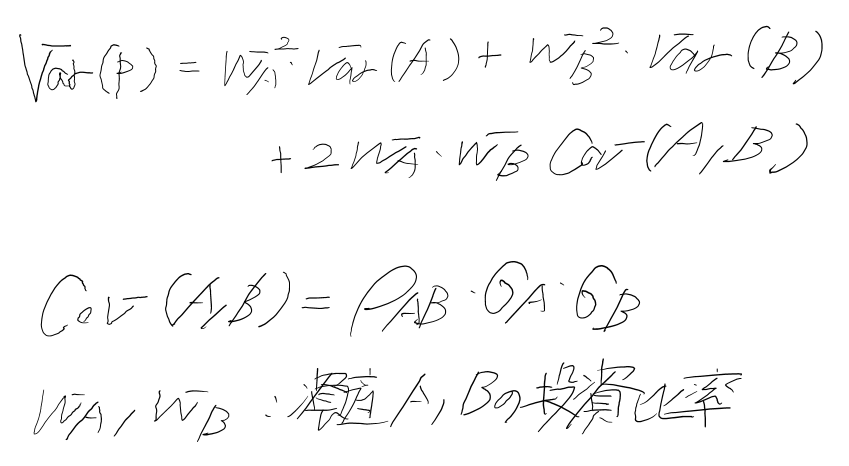 Var(P) = W_A^2・Var(A) + W_B^2・Var(B)
+ 2W_A・W_B Cov(A,B)
Cov(A,B) = ρ_AB・σ_A・σ_B
W_A, W_B : 資産A, Bの投資比率